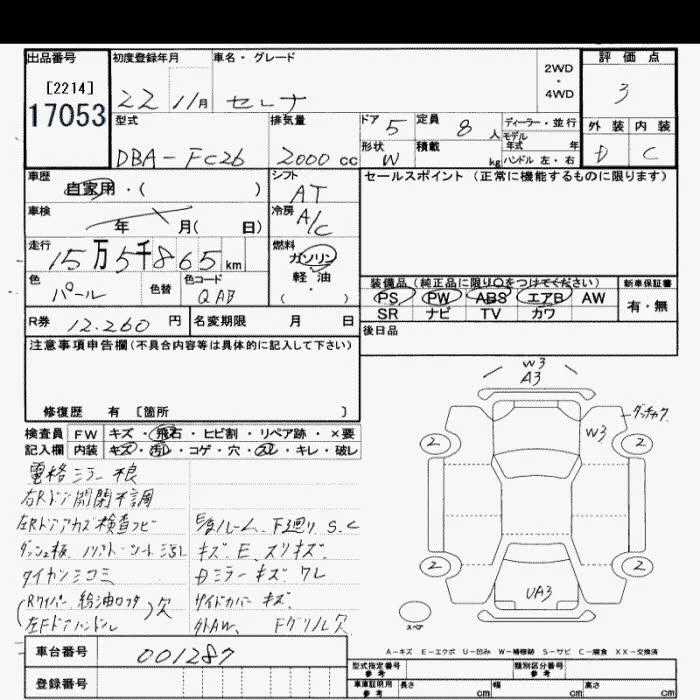 出品番号 初度登録年月 車名・グレード 2WD・4WD 評価点
[2214]
17053 22 11月 セレナ 3
型式 排気量 ドア 5 定員 8 人 ディーラー・並行 外装 内装
モデル年式 年
DBA-FC26 2000 cc 形状 W 積載 kg ハンドル 左・右 D C
車歴 シフト セールスポイント (正常に機能するものに限ります)
自家用・( ) AT
車検 冷房
年 月( 日) A/C
走行 燃料
15万5千865 km ガソリン
軽・油
( )
色 色替 色コード 装備品(純正品に限り○をつけてください) 新車保証書
パール QAB PS PW ABS エアB AW 有・無
SR ナビ TV カワ
R券 12.260 円 名変期限 月 日 後日品
注意事項申告欄(不具合内容等は具体的に記入して下さい)
W3
A3
修復歴 有 [箇所 ]
検査員 FW キズ・飛石・ヒビ割・リペア跡・×要
記入欄 内装 キズ・汚れ・コゲ・穴・スレ・キレ・破レ
W3
2 2
電格ミラー不良
右Rドア開閉不調
左Rドアカズ検査コビ 下廻りS.C
キズ、E、スリキズ
Dミラーキズ ワレ
2 2
UA3
(Rワイパー 給油ロフタ)欠 サイドカバーキズ
左Fドアハンドル 外AW、Fグリル欠
スペア
A-キズ E-エクボ U-凹み W-補修跡 S-サビ C-腐食 XX-交換済
車台番号 001287 型式指定番号 参考 類別区分番号 参考
登録番号 車庫証明用 参考 長さ cm 幅 cm 高さ cm